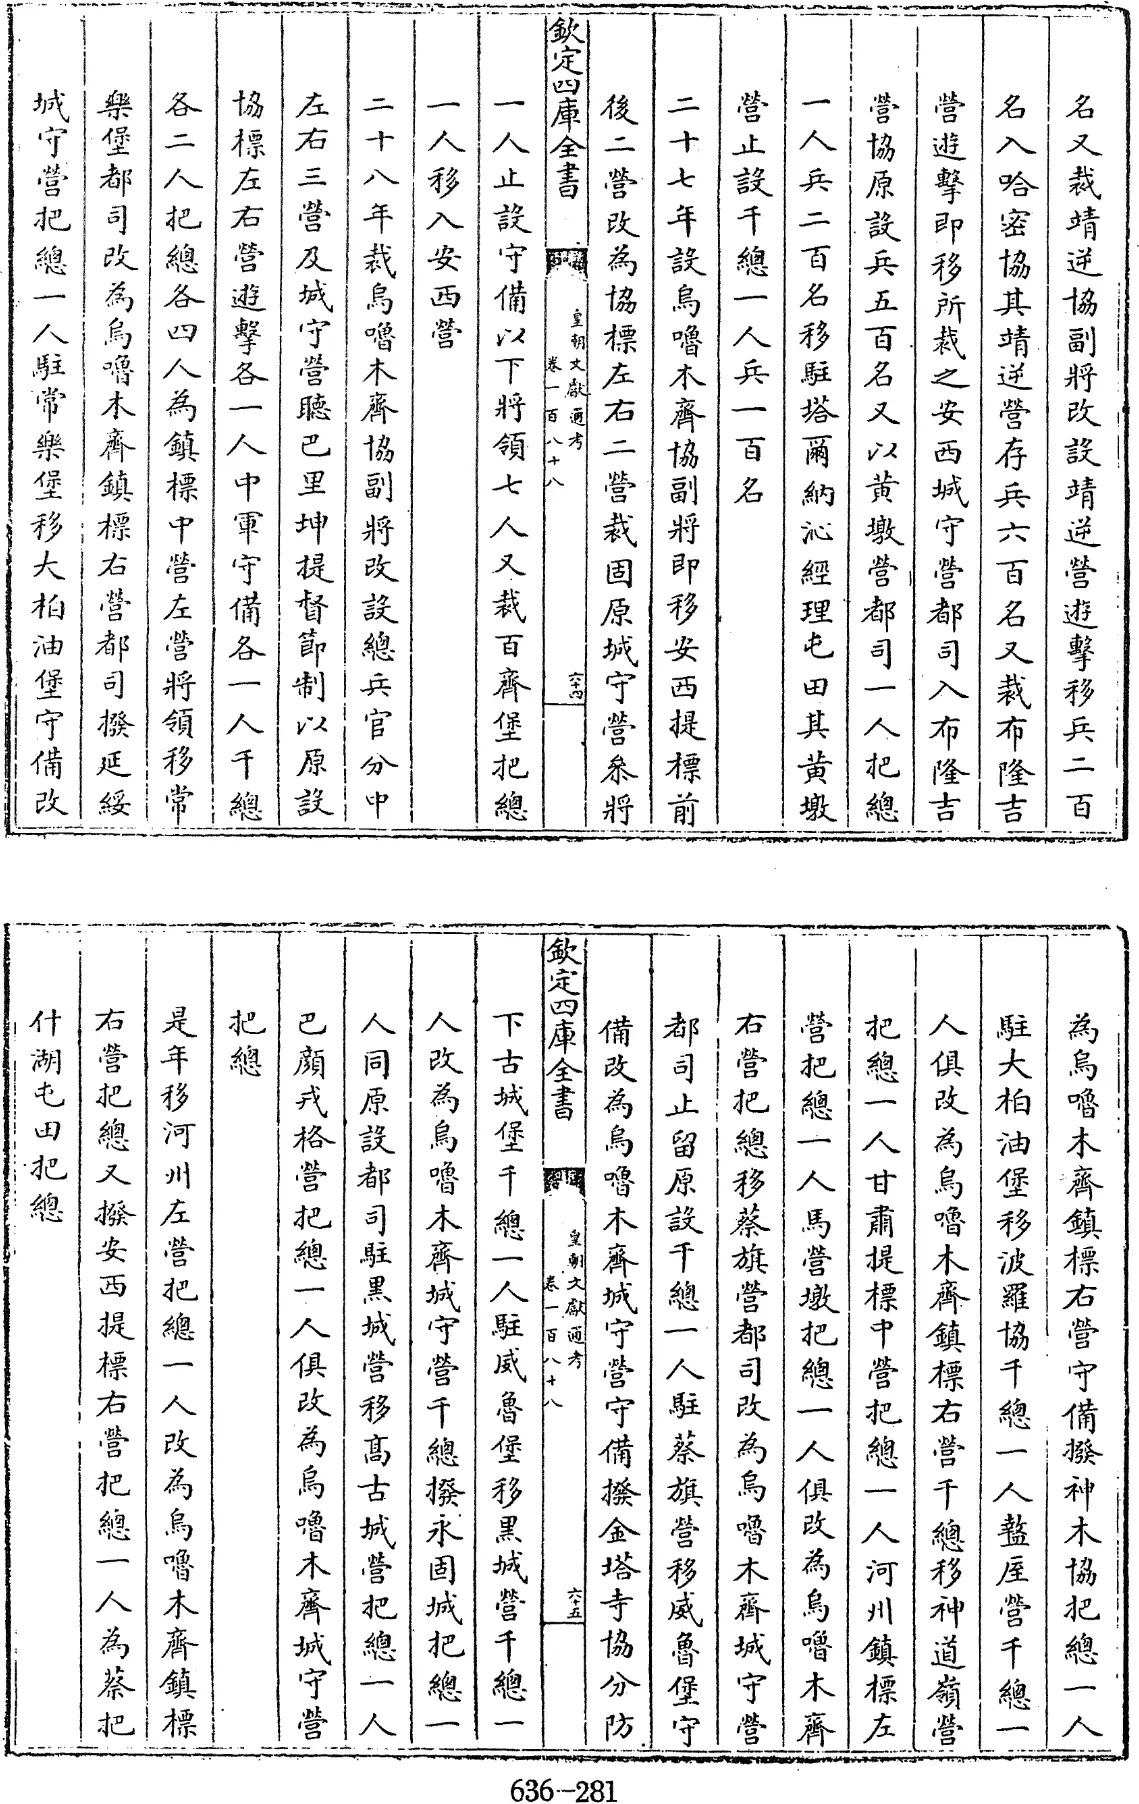 名又裁靖逆協副將改設靖逆營遊擊移兵二百
名入哈密協其靖逆營存兵六百名又裁布隆吉
營遊擊即移所裁之安西城守營都司入布隆吉
營協原設兵五百名又以黃墩營都司一人把總
一人兵二百名移駐塔爾納沁經理屯田其黃墩
營止設千總一人兵一百名
二十七年設烏嚕木齊協副將即移安西提標前
後二營改為協標左右二營裁固原城守營叅將
欽定四庫全書
皇朝文獻通考
卷一百八十八
六十四
一人止設守備以下將領七人又裁百齊堡把總
一人移入安西營
二十八年裁烏嚕木齊協副將改設總兵官分中
左右三營及城守營聽巴里坤提督節制以原設
協標左右營遊擊各一人中軍守備各一人千總
各二人把總各四人為鎮標中營左營將領移常
樂堡都司改為烏嚕木齊鎮標右營都司撥延綏
城守營把總一人駐常樂堡移大柏油堡守備改
為烏嚕木齊鎮標右營守備撥神木協把總一人
駐大柏油堡移波羅協千總一人盩厔營千總一
人俱改為烏嚕木齊鎮標右營千總移神道嶺營
把總一人甘肅提標中營把總一人河州鎮標左
營把總一人馬營墩把總一人俱改為烏嚕木齊
右營把總移蔡旗營都司改為烏嚕木齊城守營
都司止留原設千總一人駐蔡旗營移威魯堡守
備改為烏嚕木齊城守營守備撥金塔寺協分防
欽定四庫全書
皇朝文獻通考
卷一百八十八
六十五
下古城堡千總一人駐威魯堡移黑城營千總一
人改為烏嚕木齊城守營千總撥永固城把總一
人同原設都司駐黑城營移高古城營把總一人
巴顏戎格營把總一人俱改為烏嚕木齊城守營
把總
是年移河州左營把總一人改為烏嚕木齊鎮標
右營把總又撥安西提標右營把總一人為蔡把
什湖屯田把總
636-281